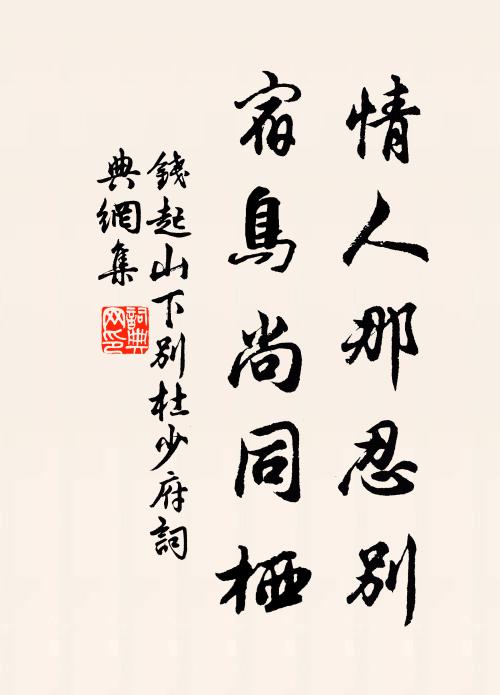 情人那忍別
宿鳥尚同栖
錢起山下別杜少府詞
典網集
詞典
网印